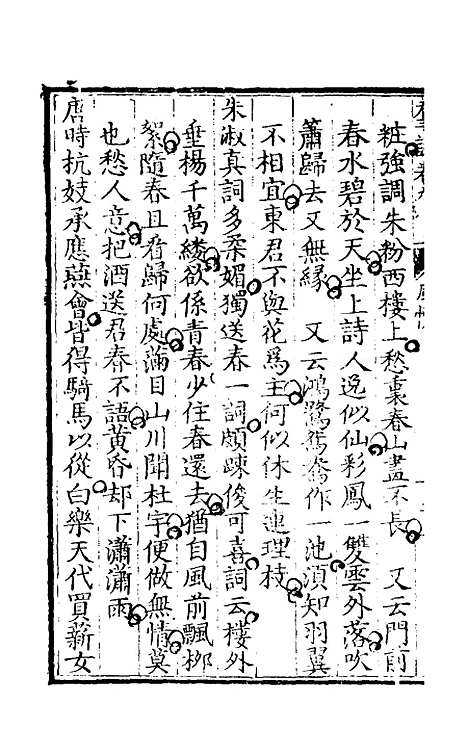 粧強調朱粉西樓上愁裏春山畫不長　又云門前
春水碧於天坐上詩人逸似仙彩鳳一雙雲外落吹
簫歸去又無緣　又云鴻鷺鴛鴦作一池須知羽翼
不相宜東君不與花爲主何似休生連理枝
朱淑真詞多柔媚獨送春一詞頗疎俊可喜詞云樓外
垂楊千萬縷欲係青春少住春還去猶自風前飄栁
絮隨春且看歸何處滿目山川聞杜宇便做無情莫
也愁人意把酒送君春不語黃昏却下瀟瀟雨
唐時杭妓承應燕會皆得騎馬以從白樂天代買薪女